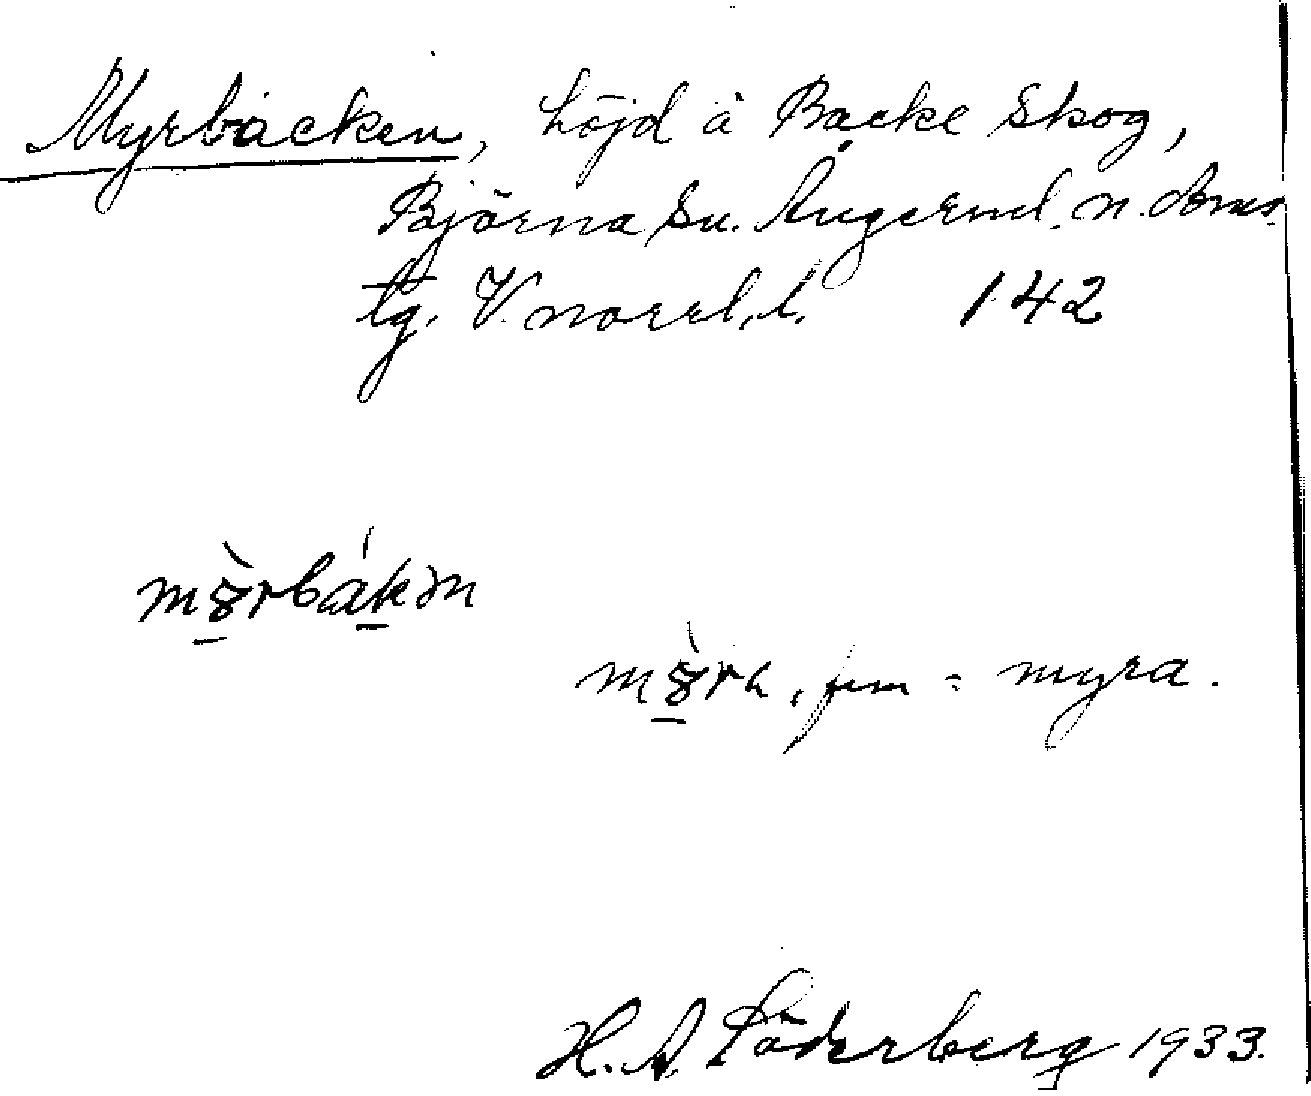 Myrbacken, höjd å Backe Skog,
Björna sn. Ångerml. n. doms.
tg. V. norrl. l. 142
fem = myra.
H. A. Söderberg 1933.